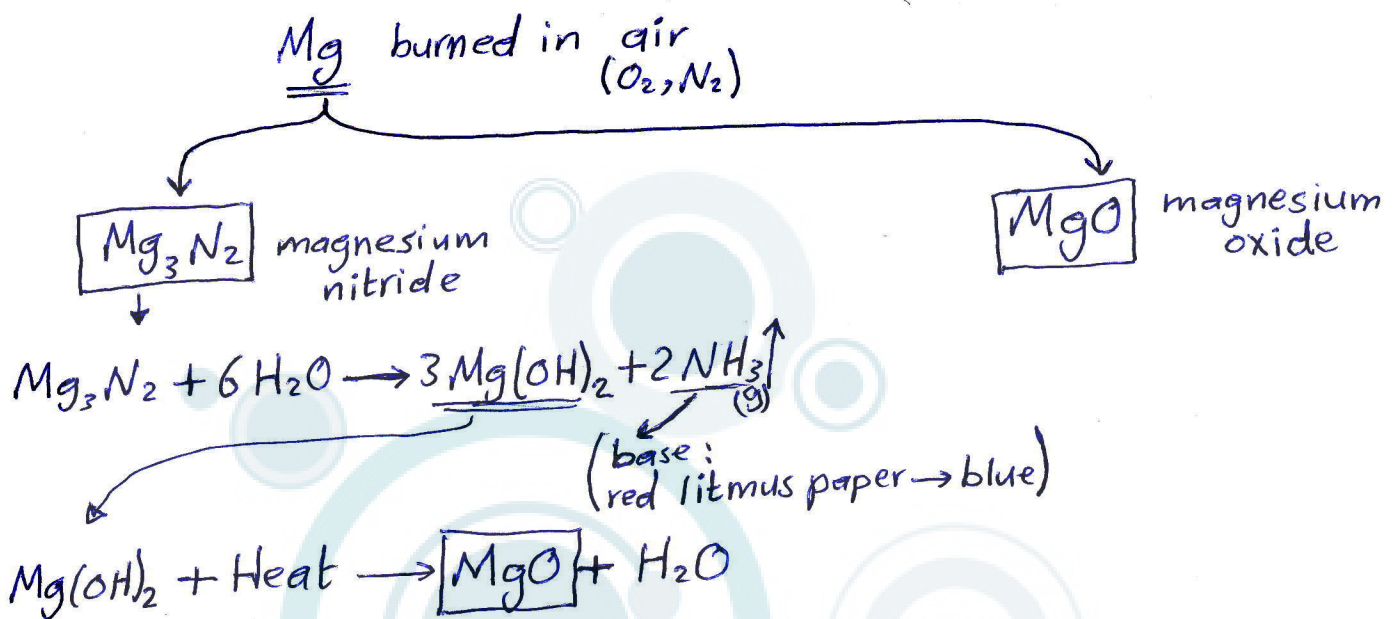 Mg burned in air
(O₂, N₂)
Mg₃N₂ magnesium
nitride
MgO magnesium
oxide
Mg₃N₂ + 6 H₂O → 3 Mg(OH)₂ + 2 NH₃↑
(g)
(base :
red litmus paper → blue)
Mg(OH)₂ + Heat → MgO + H₂O